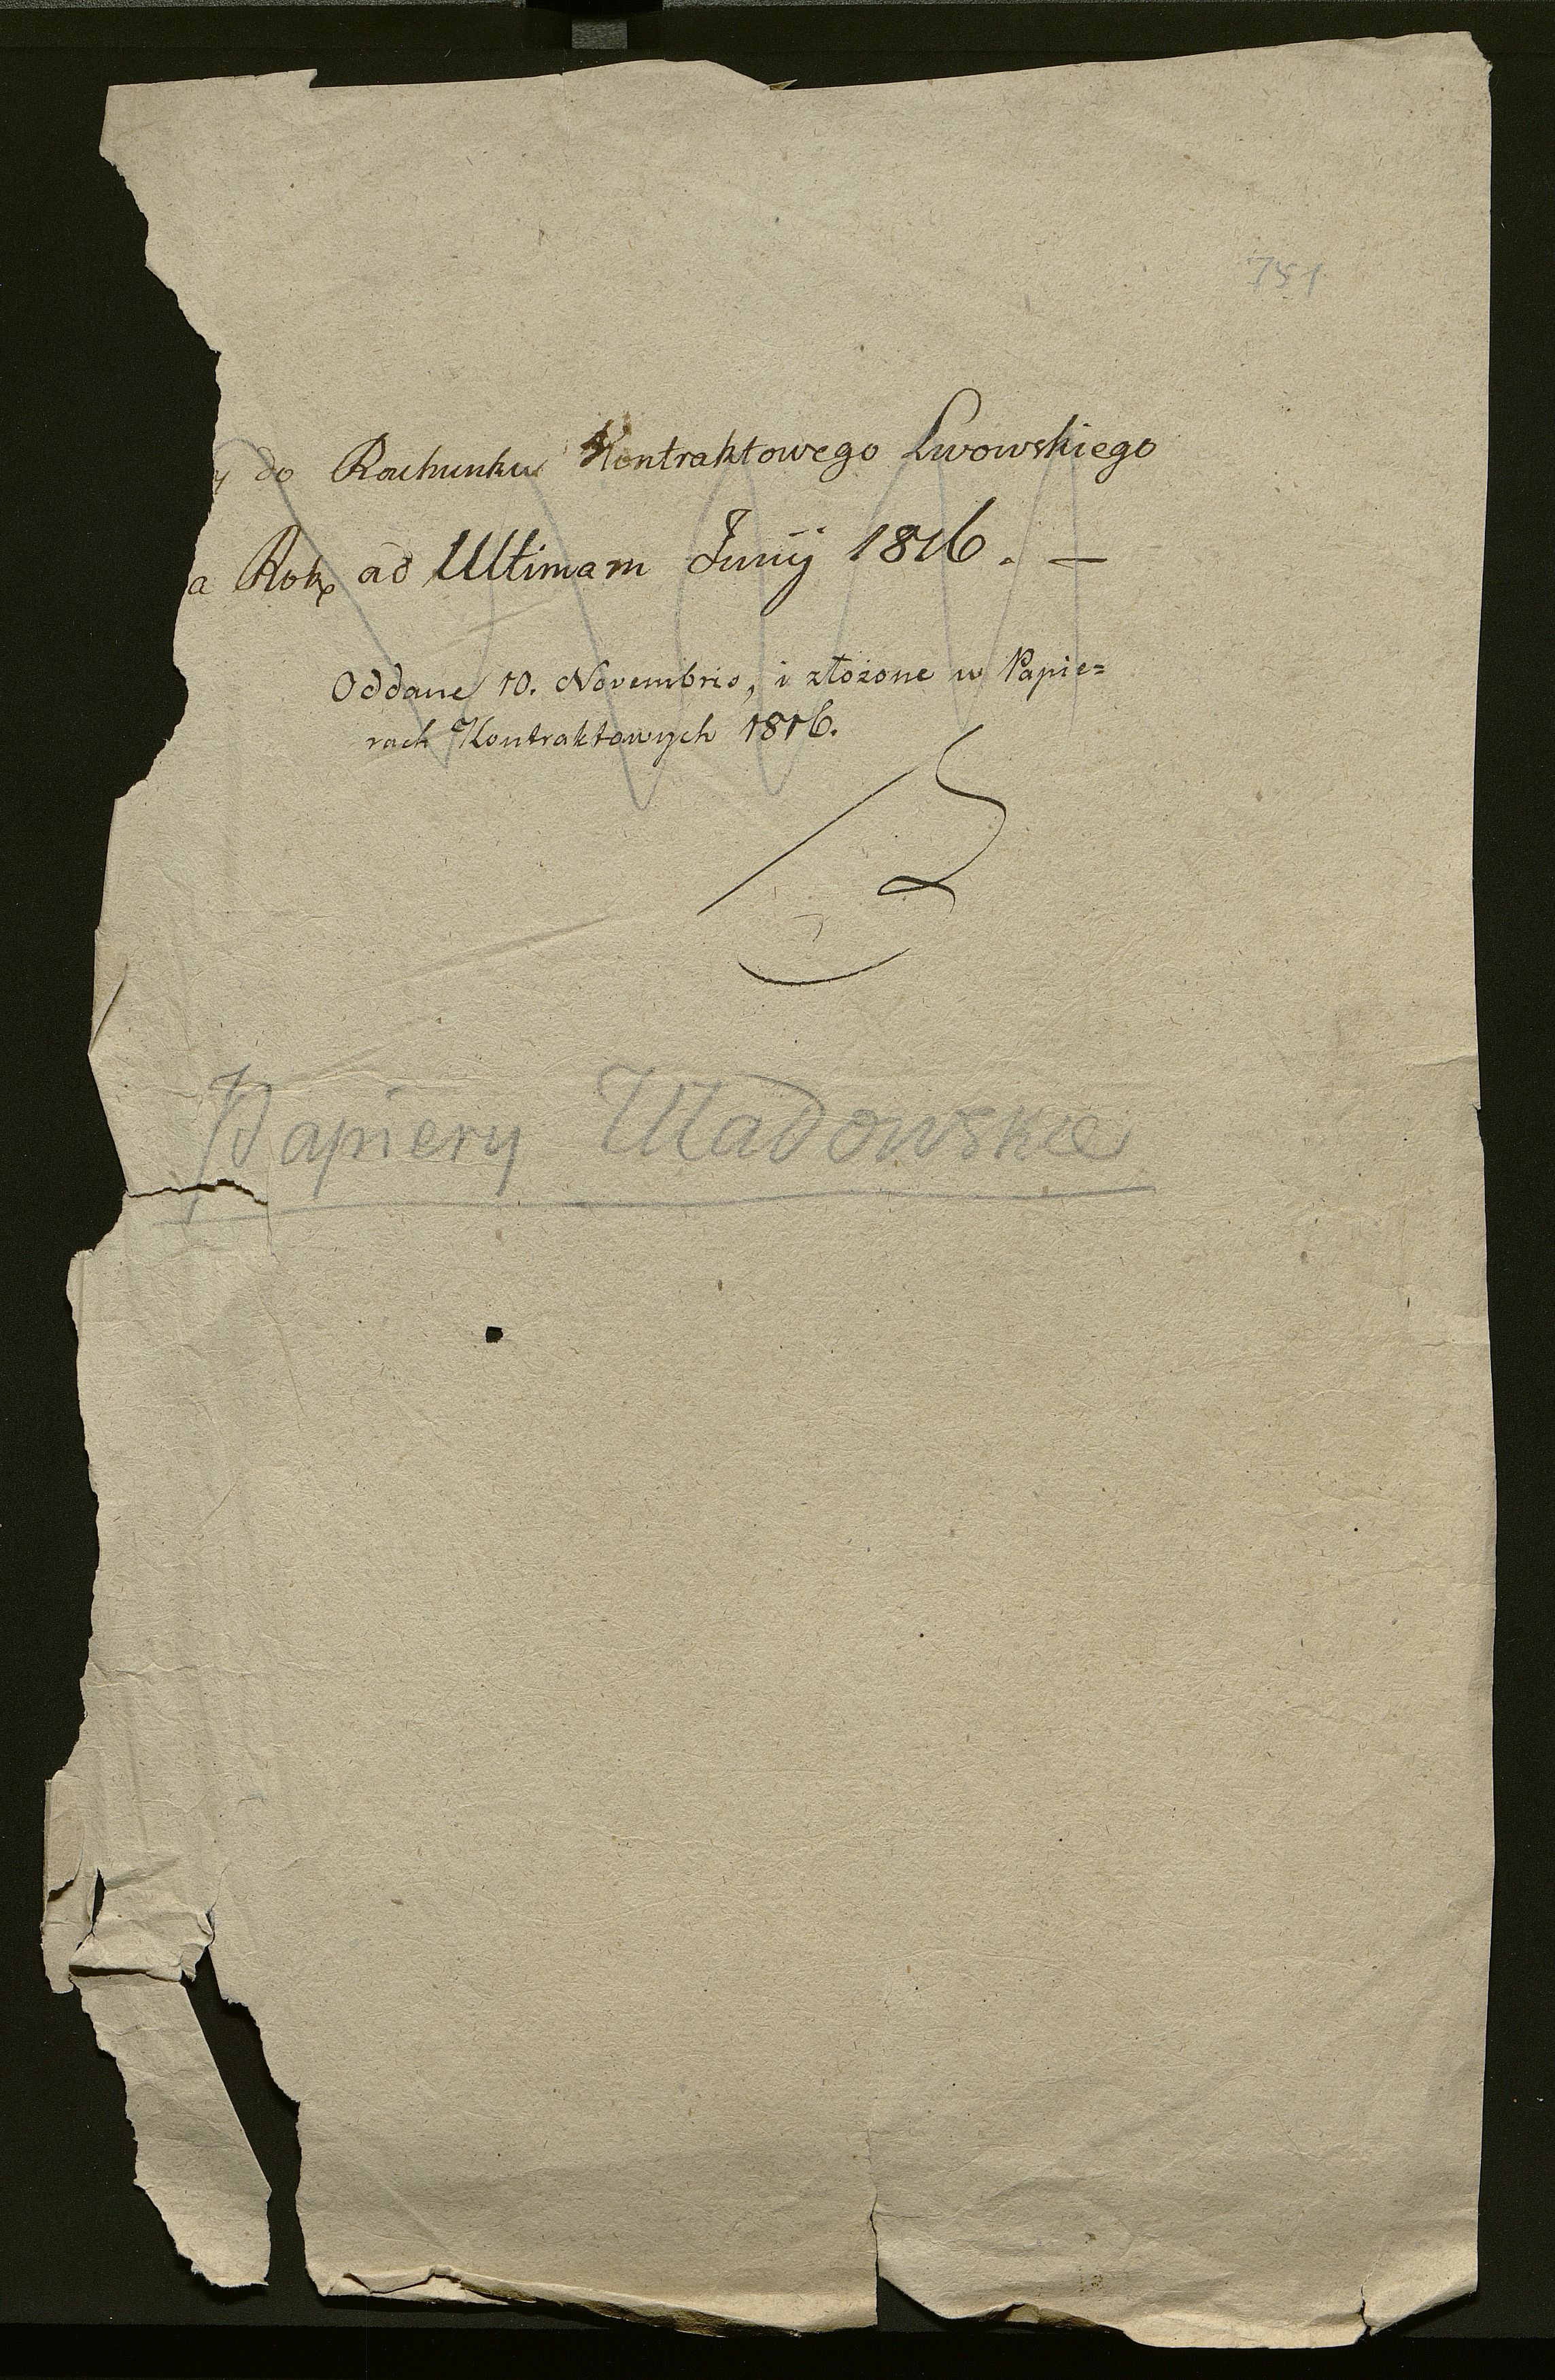 751
y do Rachunku Kontraktowego Lwowskiego
a Rok ad Ultimam Junij 1816. —
Oddane 10. Novembris, i złożone w Papie=
rach Kontraktowych 1816.
Papiery Uładowskie